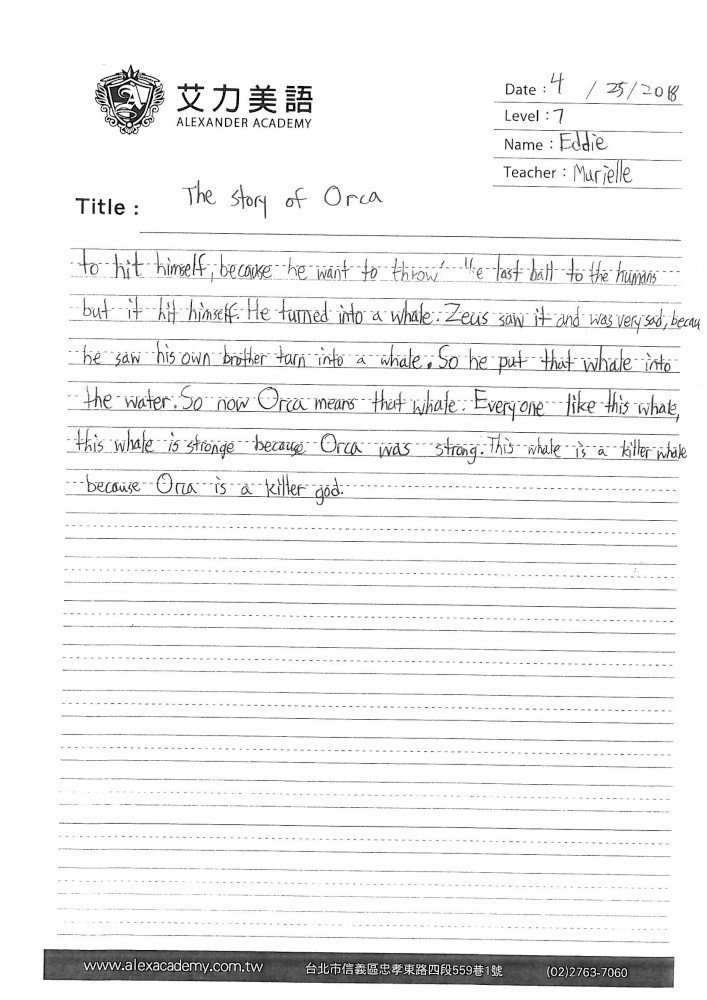 艾力美語
ALEXANDER ACADEMY
Date : 4 / 25/2018
Level : 7
Name : Eddie
Teacher : Murielle
Title : The story of Orca
to hit himself, because he want to throw the last ball to the humans
but it hit himself. He turned into a whale. Zeus saw it and was very sad, becau
he saw his own brother turn into a whale. So he put that whale into
the water. So now Orca means that whale. Everyone like this whale,
this whale is stronge because Orca was strong. This whale is a killer whale
because Orca is a killer god.
www.alexacademy.com.tw 台北市信義區忠孝東路四段559巷1號 (02)2763-7060